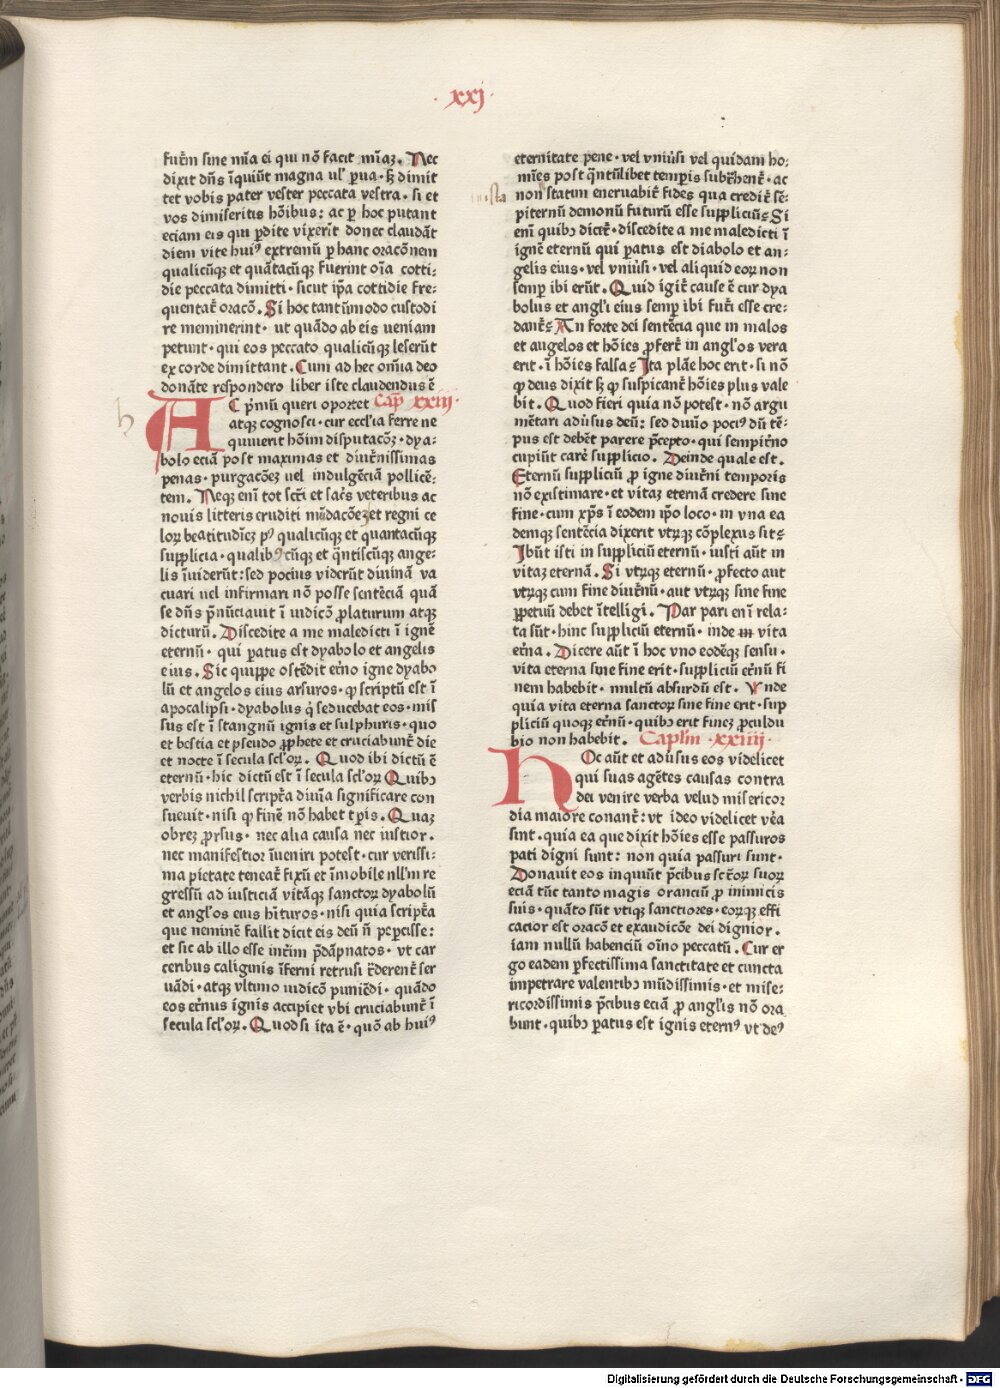 · xxj ·
futr̃m sine mĩa ei qui nõ facit mĩaʒ. Nec
dixit dñs ĩquiũt magna ul' ꝑua · sʒ dimit
tet vobis pater vester peccata vestra · si et
vos dimiseritis hõibus: ac ꝑ hoc putant
eciam eis qui ꝑdite vixerĩt donec claudãt
diem vite huiꝰ extremũ ꝑ hanc oracõnem
qualicũqʒ et quãtacũqʒ fuerint oĩa cotti-
die peccata dimitti · sicut ip̃a cottidie fre-
quentat̃ oracõ. Si hoc tantũmodo custodi
re meminerint · ut quãdo ab eis veniam
petunt · qui eos peccato qualicũqʒ leserũt
ex corde dimittant. Cum ad hec om̃ia deo
donãte respondero liber iste claudendus ẽ
AC p̃mũ queri oportet Cap̃ xxiij ·
atqʒ cognosci · cur eccl'ia ferre ne
quiuerit hõim disputacõʒ · dya-
bolo eciã post maximas et diut̃nissimas
penas · purgacõeʒ uel indulgẽciã pollicẽ-
tem. Neqʒ enĩ tot sct̃i et sac̃s veteribus ac
nouis litteris eruditi mũdacõeʒ et regni ce
loꝝ beatitudĩeʒ pꝰ qualicũqʒ et quantacũqʒ
supplicia · qualibꝰcũqʒ et q̃ntiscũqʒ ange-
lis ĩuiderũt: sed pocius viderũt diuinã va
cuari uel infirmari nõ posse sentẽciã quã
se dñs p̃nũciauit ĩ iudicõ ꝓlaturum atqʒ
dicturũ. Discedite a me maledicti ĩ ignẽ
eternũ · qui ꝑatus est dyabolo et angelis
eius. Sic quippe ostẽdit et̃no igne dyabo
lũ et angelos eius arsuros · ꝙ scriptũ est ĩ
apocalipsi · dyabolus q̃ seducebat eos · mis
sus est ĩ stangnũ ignis et sulphuris · quo
et bestia et pseudo ꝓphete et cruciabunt̃ die
et nocte ĩ secula sc'loꝝ. Quod ibi dictũ ẽ
eternũ · hic dictũ est ĩ secula sc'loꝝ Quibꝫ
verbis nichil script̃a diuĩa significare con
sueuit · nisi ꝙ finẽ nõ habet tꝑis. Quaʒ
obreʒ ꝓrsus · nec alia causa nec iustior ·
nec manifestior ĩueniri potest · cur verissi-
ma pietate teneat̃ fixũ et ĩmobile nll'm re
gressũ ad iusticiã vitãqʒ sanctoꝝ dyabolũ
et angl'os eius hĩturos · nisi quia script̃a
que neminẽ fallit dicit eis deũ ñ peꝑcisse:
et sic ab illo esse int̃im p̃dãpnatos · vt car
ceribus caliginis ĩferni retrusi t̃derent̃ ser
uãdi · atqʒ vltimo iudicõ puniẽdi · quãdo
eos et̃nus ignis accipiet vbi cruciabunt̃ ĩ
secula sc'loꝝ. Quod si ita ẽ · quõ ab huiꝰ
eternitate pene · vel vniũsi vel quidam ho-
mĩes post q̃ntũlibet temꝑis subt̃hent̃ · ac
non statim eneruabit̃ fides qua credit̃ sẽ-
piternũ demonũ futurũ esse suppliciũ? Si
enĩ quibꝫ dicet̃ · discedite a me maledicti ĩ
ignẽ eternũ qui ꝑatus est diabolo et an-
gelis eius · vel vniũsi · vel aliquid eoꝝ non
semꝑ ibi erũt. Quid igit̃ cause ẽ cur dya
bolus et angl'i eius semꝑ ibi fut̃i esse cre-
dant̃? An forte dei sentẽcia que in malos
et angelos et hõies ꝓfert̃ in angl'os vera
erit · ĩ hõies falsa? Ita plãe hoc erit · si nõ
ꝙ deus dixit sʒ ꝙ suspicant̃ hõies plus vale
bit. Quod fieri quia nõ potest · nõ argu
mẽtari adũsus deũ: sed diuĩo pociꝰ dũ tẽ-
pus est debẽt parere p̃cepto · qui sempit̃no
cupiũt care̾ supplicio. Deinde quale est.
Eternũ suppliciũ ꝓ igne diut̃ni temporis
nõ existimare · et vitaʒ eternã credere sine
fine · cum xp̃s ĩ eodem ip̃o loco · in vna ea
demqʒ sentẽcia dixerit vtrũqʒ cõplexus sit?
Ibũt isti in suppliciũ eternũ · iusti aũt in
vitaʒ eternã. Si vtrũqʒ eternũ · ꝓfecto aut
vtrũqʒ cum fine diut̃nũ · aut vtrũqʒ sine fine
ꝑpetuũ debet ĩtelligi. Par pari enĩ rela-
ta sũt · hinc suppliciũ eternũ · inde in vita
et̃na. Dicere aũt ĩ hoc vno eodẽqʒ sensu ·
vita eterna sine fine erit · suppliciũ et̃nũ fi
nem habebit · multũ absurdũ est. Vnde
quia vita eterna sanctoꝝ sine fine erit · sup
pliciũ quoqʒ et̃nũ · quibꝫ erit fineʒ ꝓculdu
bio non habebit. Cap̃lm · xxiiij ·
HOc aũt et adũsus eos videlicet
qui suas agẽtes causas contra
dei venire verba velud misericor
dia maiore conant̃: vt ideo videlicet ve̾a
sint · quia ea que dixit hõies esse passuros
pati digni sunt: non quia passuri sunt ·
Donauit eos inquiũt p̃cibus sct̃oꝝ suoꝝ
eciã tũc tanto magis oranciũ ꝓ inimicis
suis · quãto sũt vtiqʒ sanctiores · eoꝝqʒ effi
cacior est oracõ et exaudicõe dei dignior ·
iam nullũ habenciũ oĩno peccatũ. Cur er
go eadem ꝑfectissima sanctitate et cuncta
impetrare valentibꝫ mũdissimis · et mise-
ricordissimis p̃cibus eciã ꝓ angl'is nõ ora
bunt · quibꝫ ꝑatus est ignis eternꝰ vt deꝰ
Digitalisierung gefördert durch die Deutsche Forschungsgemeinschaft · DFG